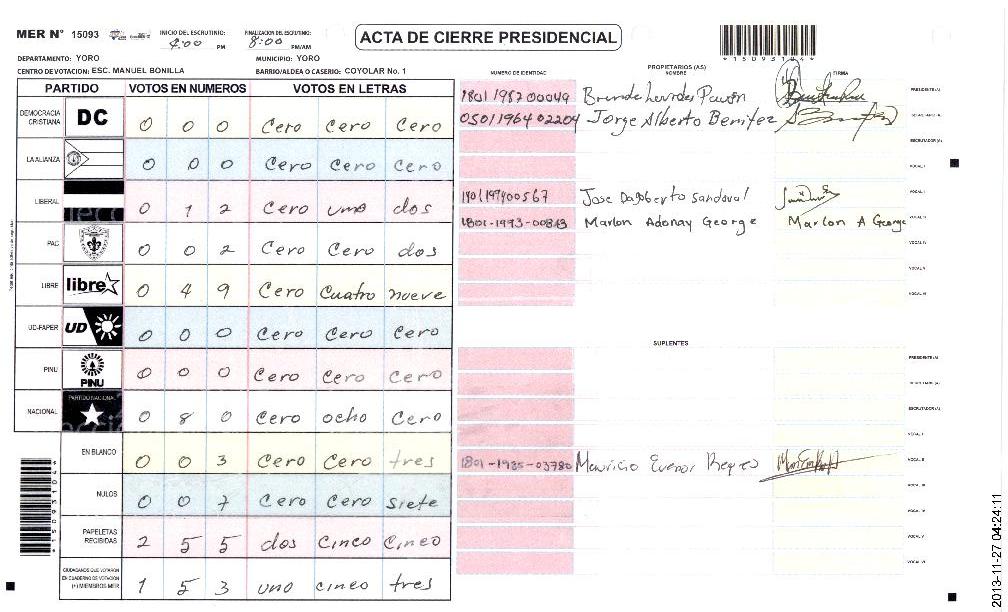 MER N° 15093
INICIO DEL ESCRUTINIO: 4:00 PM
FINALIZACION DEL ESCRUTINIO: 8:00 PM/AM
ACTA DE CIERRE PRESIDENCIAL
*15093104*
DEPARTAMENTO: YORO
MUNICIPIO: YORO
CENTRO DE VOTACION: ESC. MANUEL BONILLA
BARRIO/ALDEA O CASERIO: COYOLAR No. 1
PARTIDO VOTOS EN NUMEROS VOTOS EN LETRAS
DEMOCRACIA CRISTIANA DC 0 0 0 Cero Cero Cero
LA ALIANZA 0 0 0 Cero Cero Cero
LIBERAL 0 1 2 Cero uno dos
PAC 0 0 2 Cero Cero dos
LIBRE libre 0 4 9 Cero Cuatro nueve
UD-FAPER UD 0 0 0 Cero Cero Cero
PINU PINU 0 0 0 Cero Cero Cero
NACIONAL PARTIDO NACIONAL 0 8 0 Cero ocho Cero
EN BLANCO 0 0 3 Cero Cero tres
NULOS 0 0 7 Cero Cero siete
PAPELETAS RECIBIDAS 2 5 5 dos Cinco Cinco
CIUDADANOS QUE VOTARON EN CUADERNO DE VOTACION (+) MIEMBROS MER 1 5 3 uno cinco tres
*15093104*
PROPIETARIOS (AS)
NUMERO DE IDENTIDAD NOMBRE FIRMA
1801 1987 00049 Brenda Lourdes Pavón PRESIDENTE (A)
0501 1964 02204 Jorge Alberto Benitez SECRETARIO (A)
ESCRUTADOR (A)
VOCAL I
1801199400567 Jose Dagoberto Sandoval VOCAL II
1801-1993-00813 Marlon Adonay George Marlon A George VOCAL III
VOCAL IV
VOCAL V
VOCAL VI
SUPLENTES
PRESIDENTE (A)
SECRETARIO (A)
ESCRUTADOR (A)
VOCAL I
1801-1935-03780 Mauricio Reyes VOCAL II
VOCAL III
VOCAL IV
VOCAL V
VOCAL VI
2013-11-27 04:24:11